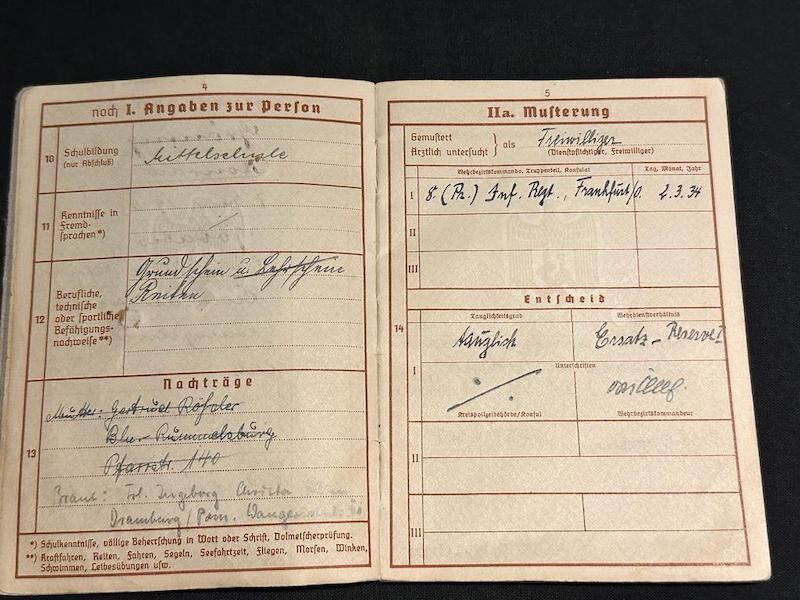 4
noch I. Angaben zur Person
10
Schulbildung
(nur Abschluß)
Mittelschule
11
Kenntnisse in
Fremd-
sprachen*)
12
Berufliche,
technische
oder sportliche
Befähigungs-
nachweise**)
Grundschein u. Lehrschein
Reiten
Nachträge
13
Mutter: Gertrud Rößler
Bln-Rummelsburg
Pfarrstr. 140
Braut: Frl. Ingeborg Christa
Dramburg/Pom.
*) Schulkenntnisse, völlige Beherrschung in Wort oder Schrift, Dolmetscherprüfung.
**) Kraftfahren, Reiten, Fahren, Segeln, Seefahrtzeit, Fliegen, Morsen, Winken,
Schwimmen, Leibesübungen usw.
5
IIa. Musterung
Gemustert
Ärztlich untersucht } als Freiwilliger
(Dienstpflichtiger, Freiwilliger)
Wehrbezirkskommando, Truppenteil, Konsulat Tag, Monat, Jahr
I 8. (Pr.) Inf. Regt., Frankfurt/O. 2.3.34
II
III
Entscheid
14
Tauglichkeitsgrad Wehrdienstverhältnis
tauglich Ersatz-Reserve I
I
Unterschriften
Kreispolizeibehörde/Konsul Wehrbezirkskommandeur
II
III